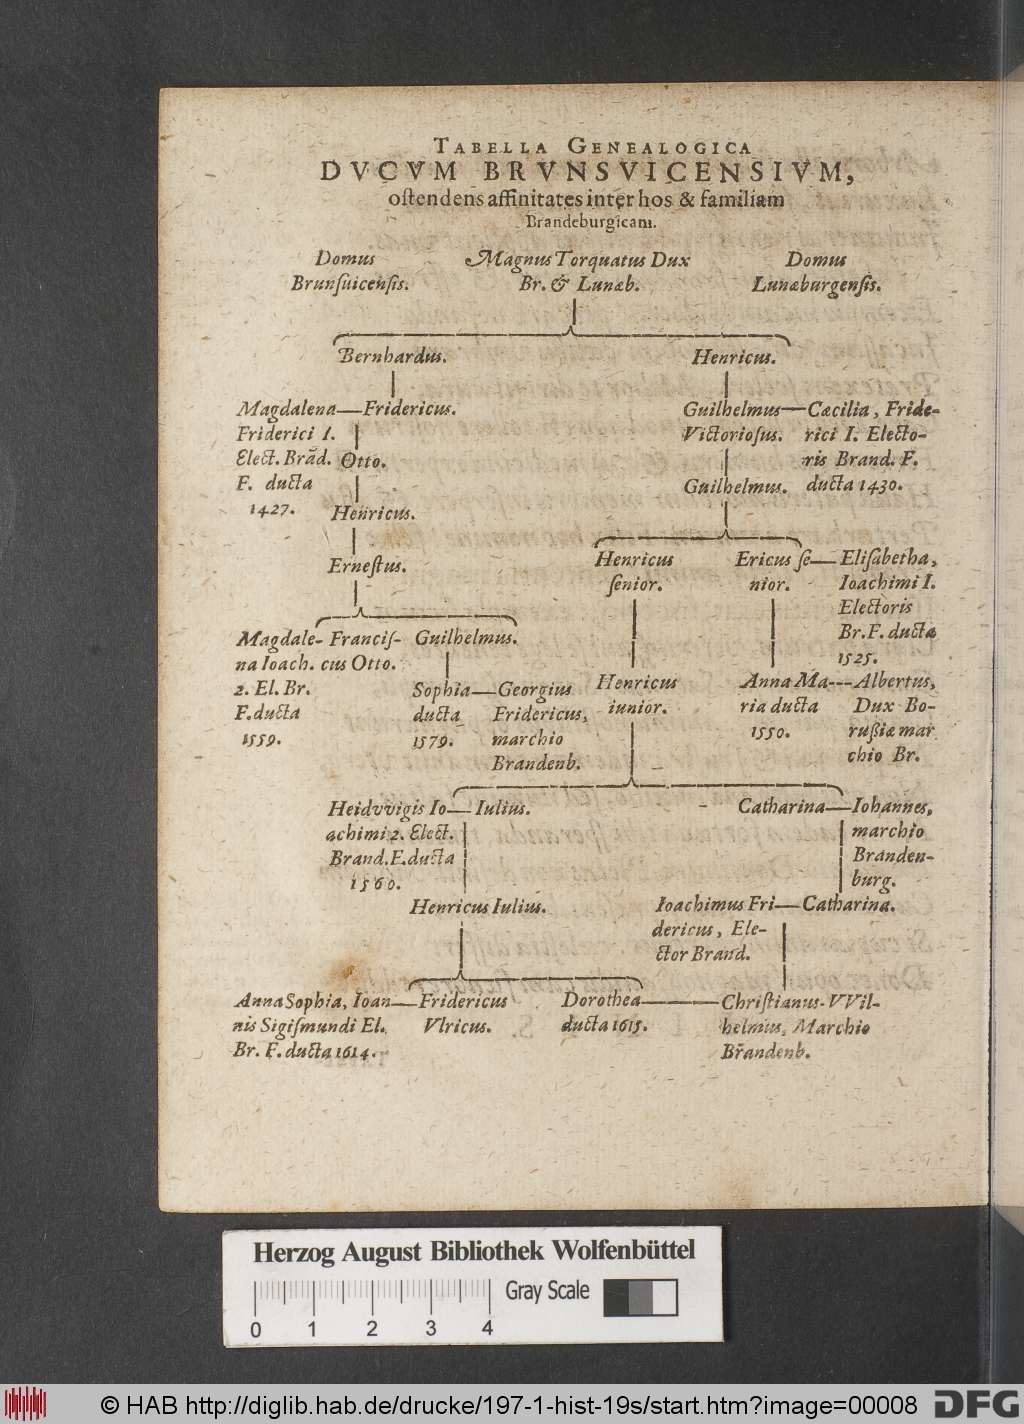 TABELLA GENEALOGICA
DVCVM BRVNSVICENSIVM,
ostendens affinitates inter hos & familiam
Brandeburgicam.
Domus Magnus Torquatus Dux Domus
Brunsuicensis. Br. & Lunæb. Lunæburgensis.
Bernhardus. Henricus.
Magdalena—Fridericus. Guilhelmus—Cæcilia, Fride-
Friderici I. Victoriosus. rici I. Electo-
Elect. Brãd. Otto. ris Brand. F.
F. ducta Guilhelmus. ducta 1430.
1427. Henricus.
Ernestus. Henricus Ericus se—Elisabetha,
senior. nior. Ioachimi I.
Electoris
Magdale- Francis- Guilhelmus. Br. F. ducta
na Ioach. cus Otto. 1525.
2. El. Br. Sophia—Georgius Henricus Anna Ma---Albertus,
F. ducta ducta Fridericus, iunior. ria ducta Dux Bo-
1559. 1579. marchio 1550. rußiæ mar
Brandenb. chio Br.
Heidvvigis Io—Iulius. Catharina—Iohannes,
achimi 2. Elect. marchio
Brand. F. ducta Branden-
1560. burg.
Henricus Iulius. Ioachimus Fri—Catharina.
dericus, Ele-
ctor Brand.
Anna Sophia, Ioan—Fridericus Dorothea—Christianus-VVil-
nis Sigismundi El. Vlricus. ducta 1615. helmus, Marchio
Br. F. ducta 1614. Brandenb.
Herzog August Bibliothek Wolfenbüttel
Gray Scale
0 1 2 3 4
© HAB http://diglib.hab.de/drucke/197-1-hist-19s/start.htm?image=00008
DFG